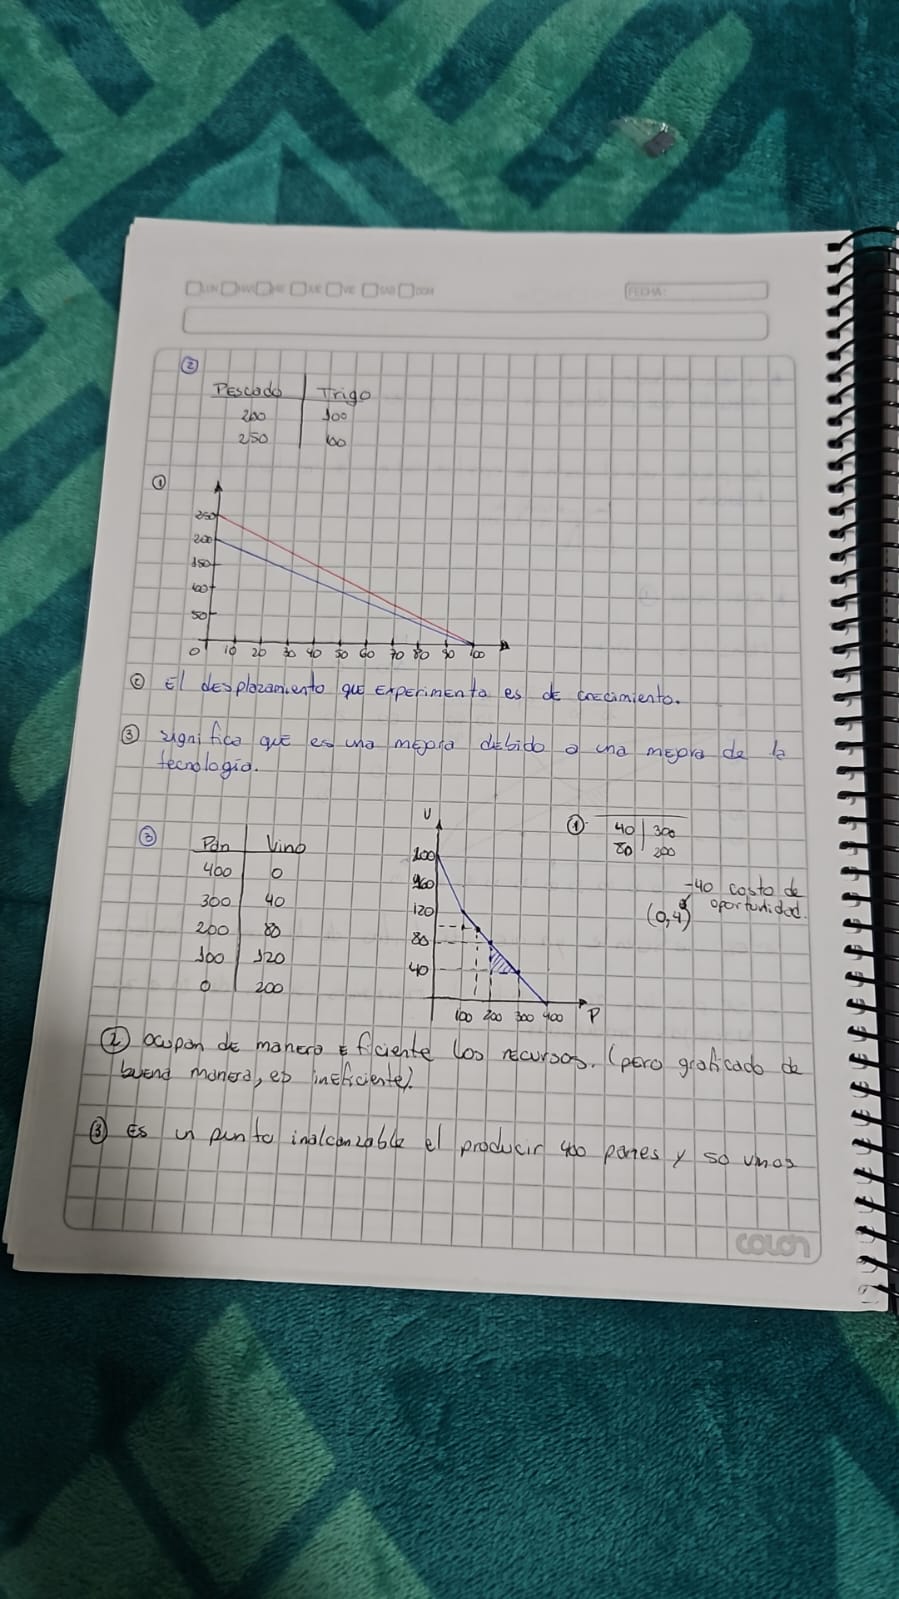 LUN MAR MIE JUE VIE SAB DOM FECHA:
②
Pescado Trigo
200 100
250 100
①
250
200
150
100
50
0 10 20 30 40 50 60 70 80 90 100
② El desplazamiento que experimenta es de crecimiento.
③ significa que es una mejora debido a una mejora de la
tecnologia.
③
Pan Vino
400 0
300 40
200 80
100 120
0 200
V
200
160
120
80
40
100 200 300 400 P
① 40 300
80 200
-40 costo de
oportunidad.
(0,4)
② ocupan de manera eficiente los recursos. (pero graficado de
buena manera, es ineficiente).
③ Es un punto inalcanzable el producir 400 panes y 50 vinos
COLON